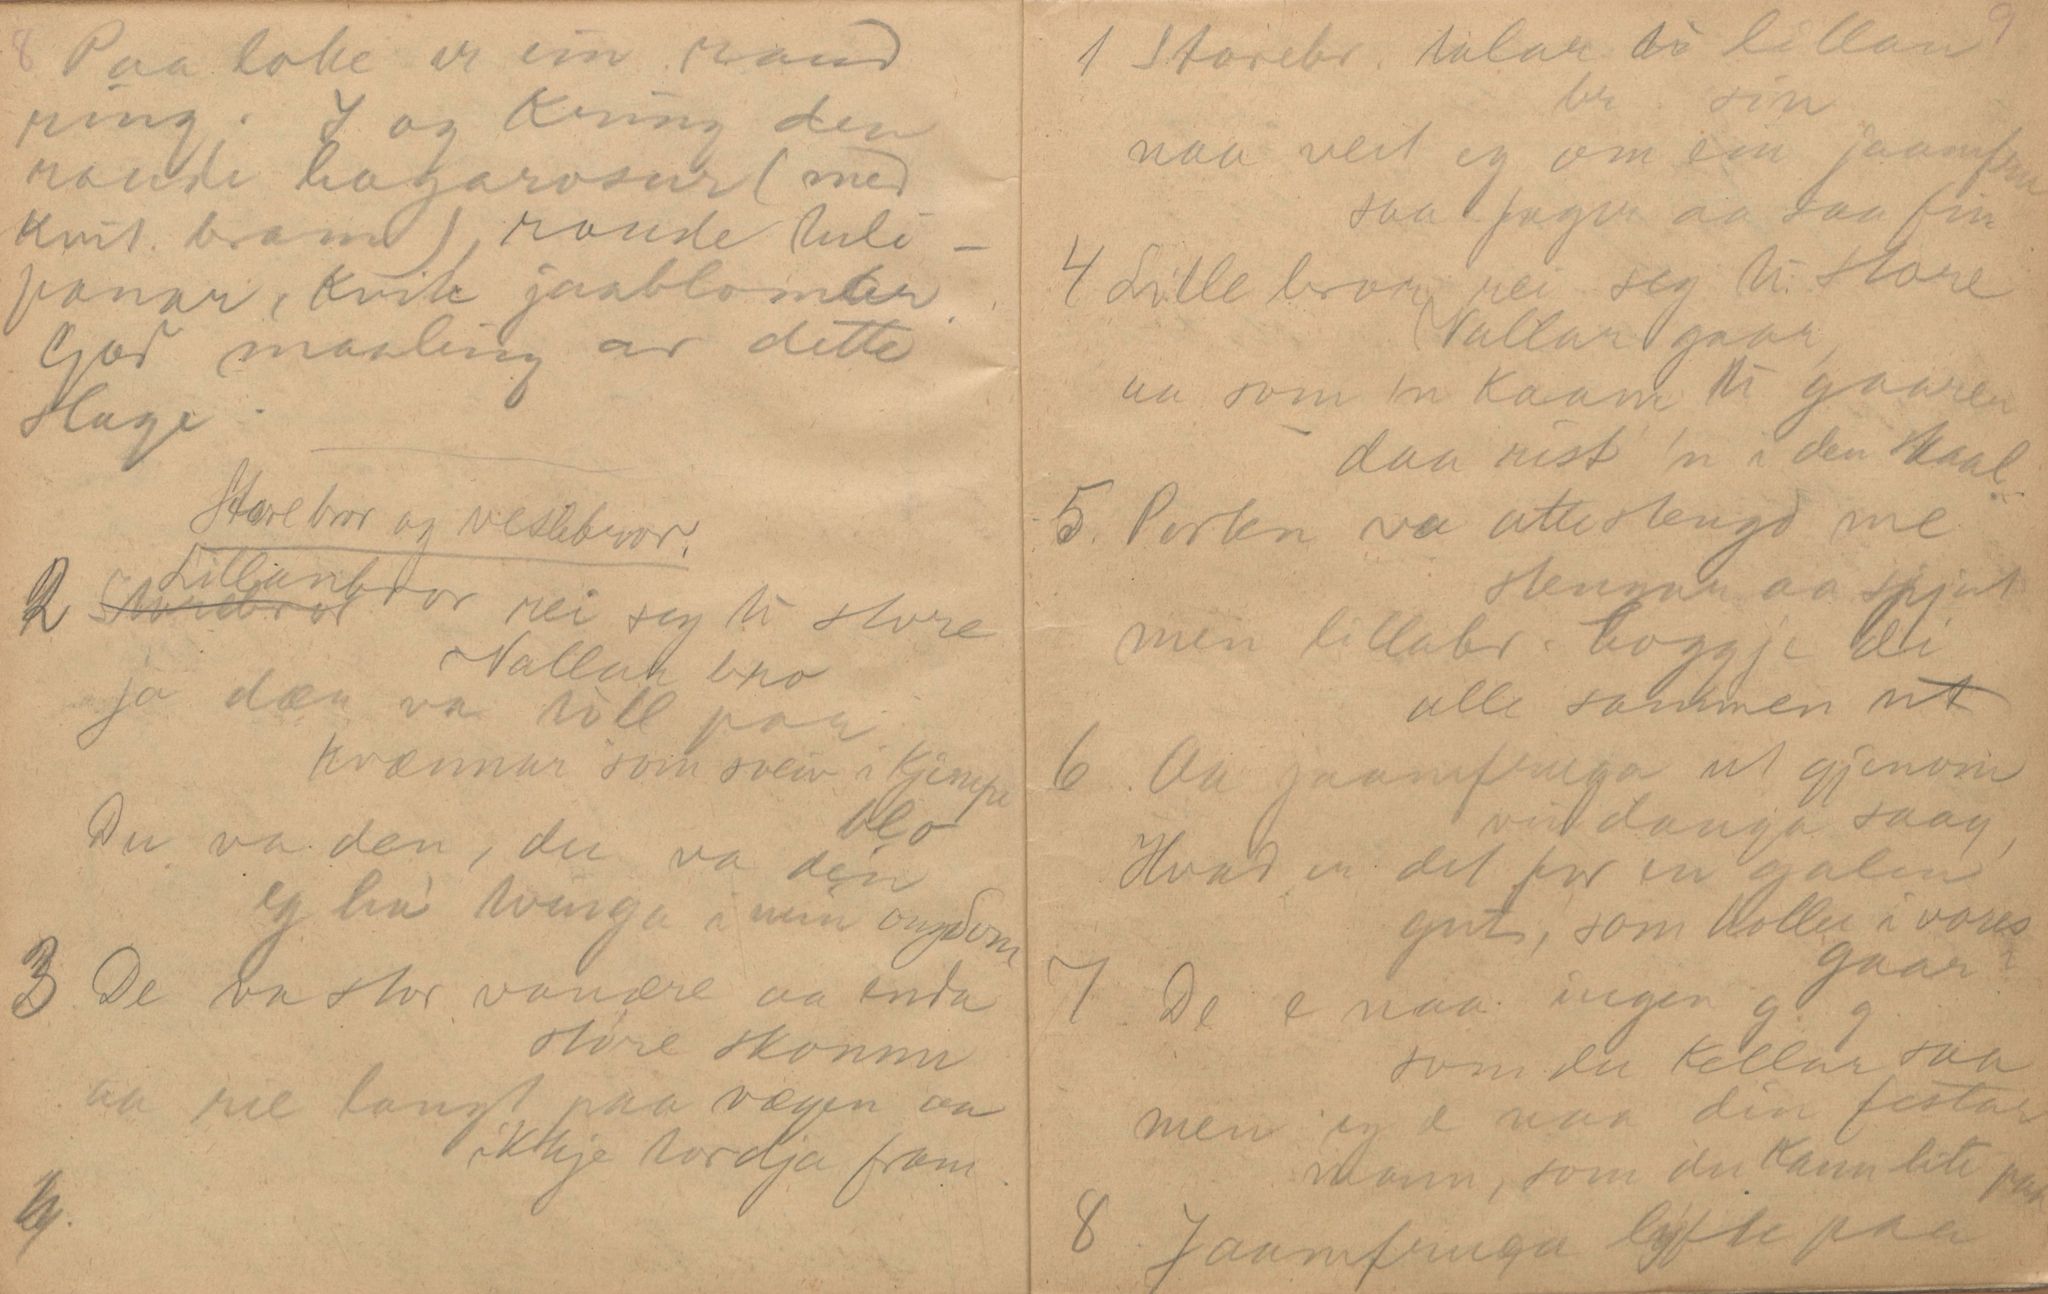 8
Paa loke er ein raud
ring. I og kring den
raude hagarosur (med
kvit bram), raude tuli-
panar, kvite jaablomter.
God maaling av dette
slage.
Storebror og veslebror.
Lillanbror
2 Storebror rei seg ti store
Vallar bro
ja dæn va till paa
kvænnar som sveiv i kjempe
blo
Du va den, du va den
eg ha tvinga i min ongdom
3 De va stor vanære aa enda
störe skomm
aa rie langt paa vægen aa
ikkje tordja fram
4.
9
1 Storebr. talar ti lillan
br sin
naa veit eg om ein jaamfru
saa fager aa saa fin
4 Lille bror rei seg ti store
Vallar gaar,
aa som 'n kaam ti gaaren
daa rist 'n i den staal.
5. Porten va attestengd me
stengur aa spjut
men lillabr. hoggje dei
alle sammen ut
6. Aa jaamfruga ut gjenom
vindauga saag,
Hvad er det for en galen
gut, som holler i vores
gaar?
7. De e naa ingen g. g.
som du kellar saa
men eg e naa din festar
mann, som du kann lite paa
8. Jaamfruga lyfte paa